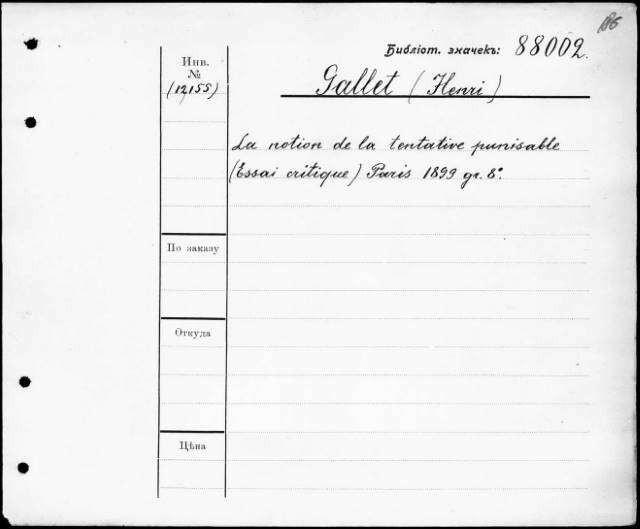 186
Библіот. значекъ: 88002.
Инв.
№
(12155)
Gallet (Henri)
La notion de la tentative punisable
(Essai critique) Paris 1899 gr. 8°.
По заказу
Откуда
Цѣна